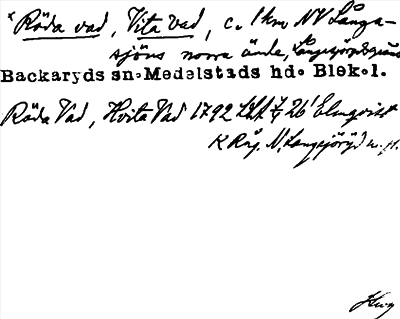 * Röda vad, Vita vad, c. 1 km NV Långa-
sjöns norra ända, Långasjöryds
Backaryds sn. Medelstads hd. Blek.l.
Röda Vad, Hvita Vad 1792 26 Elmqvist
K Råg. N. Långsjöryd